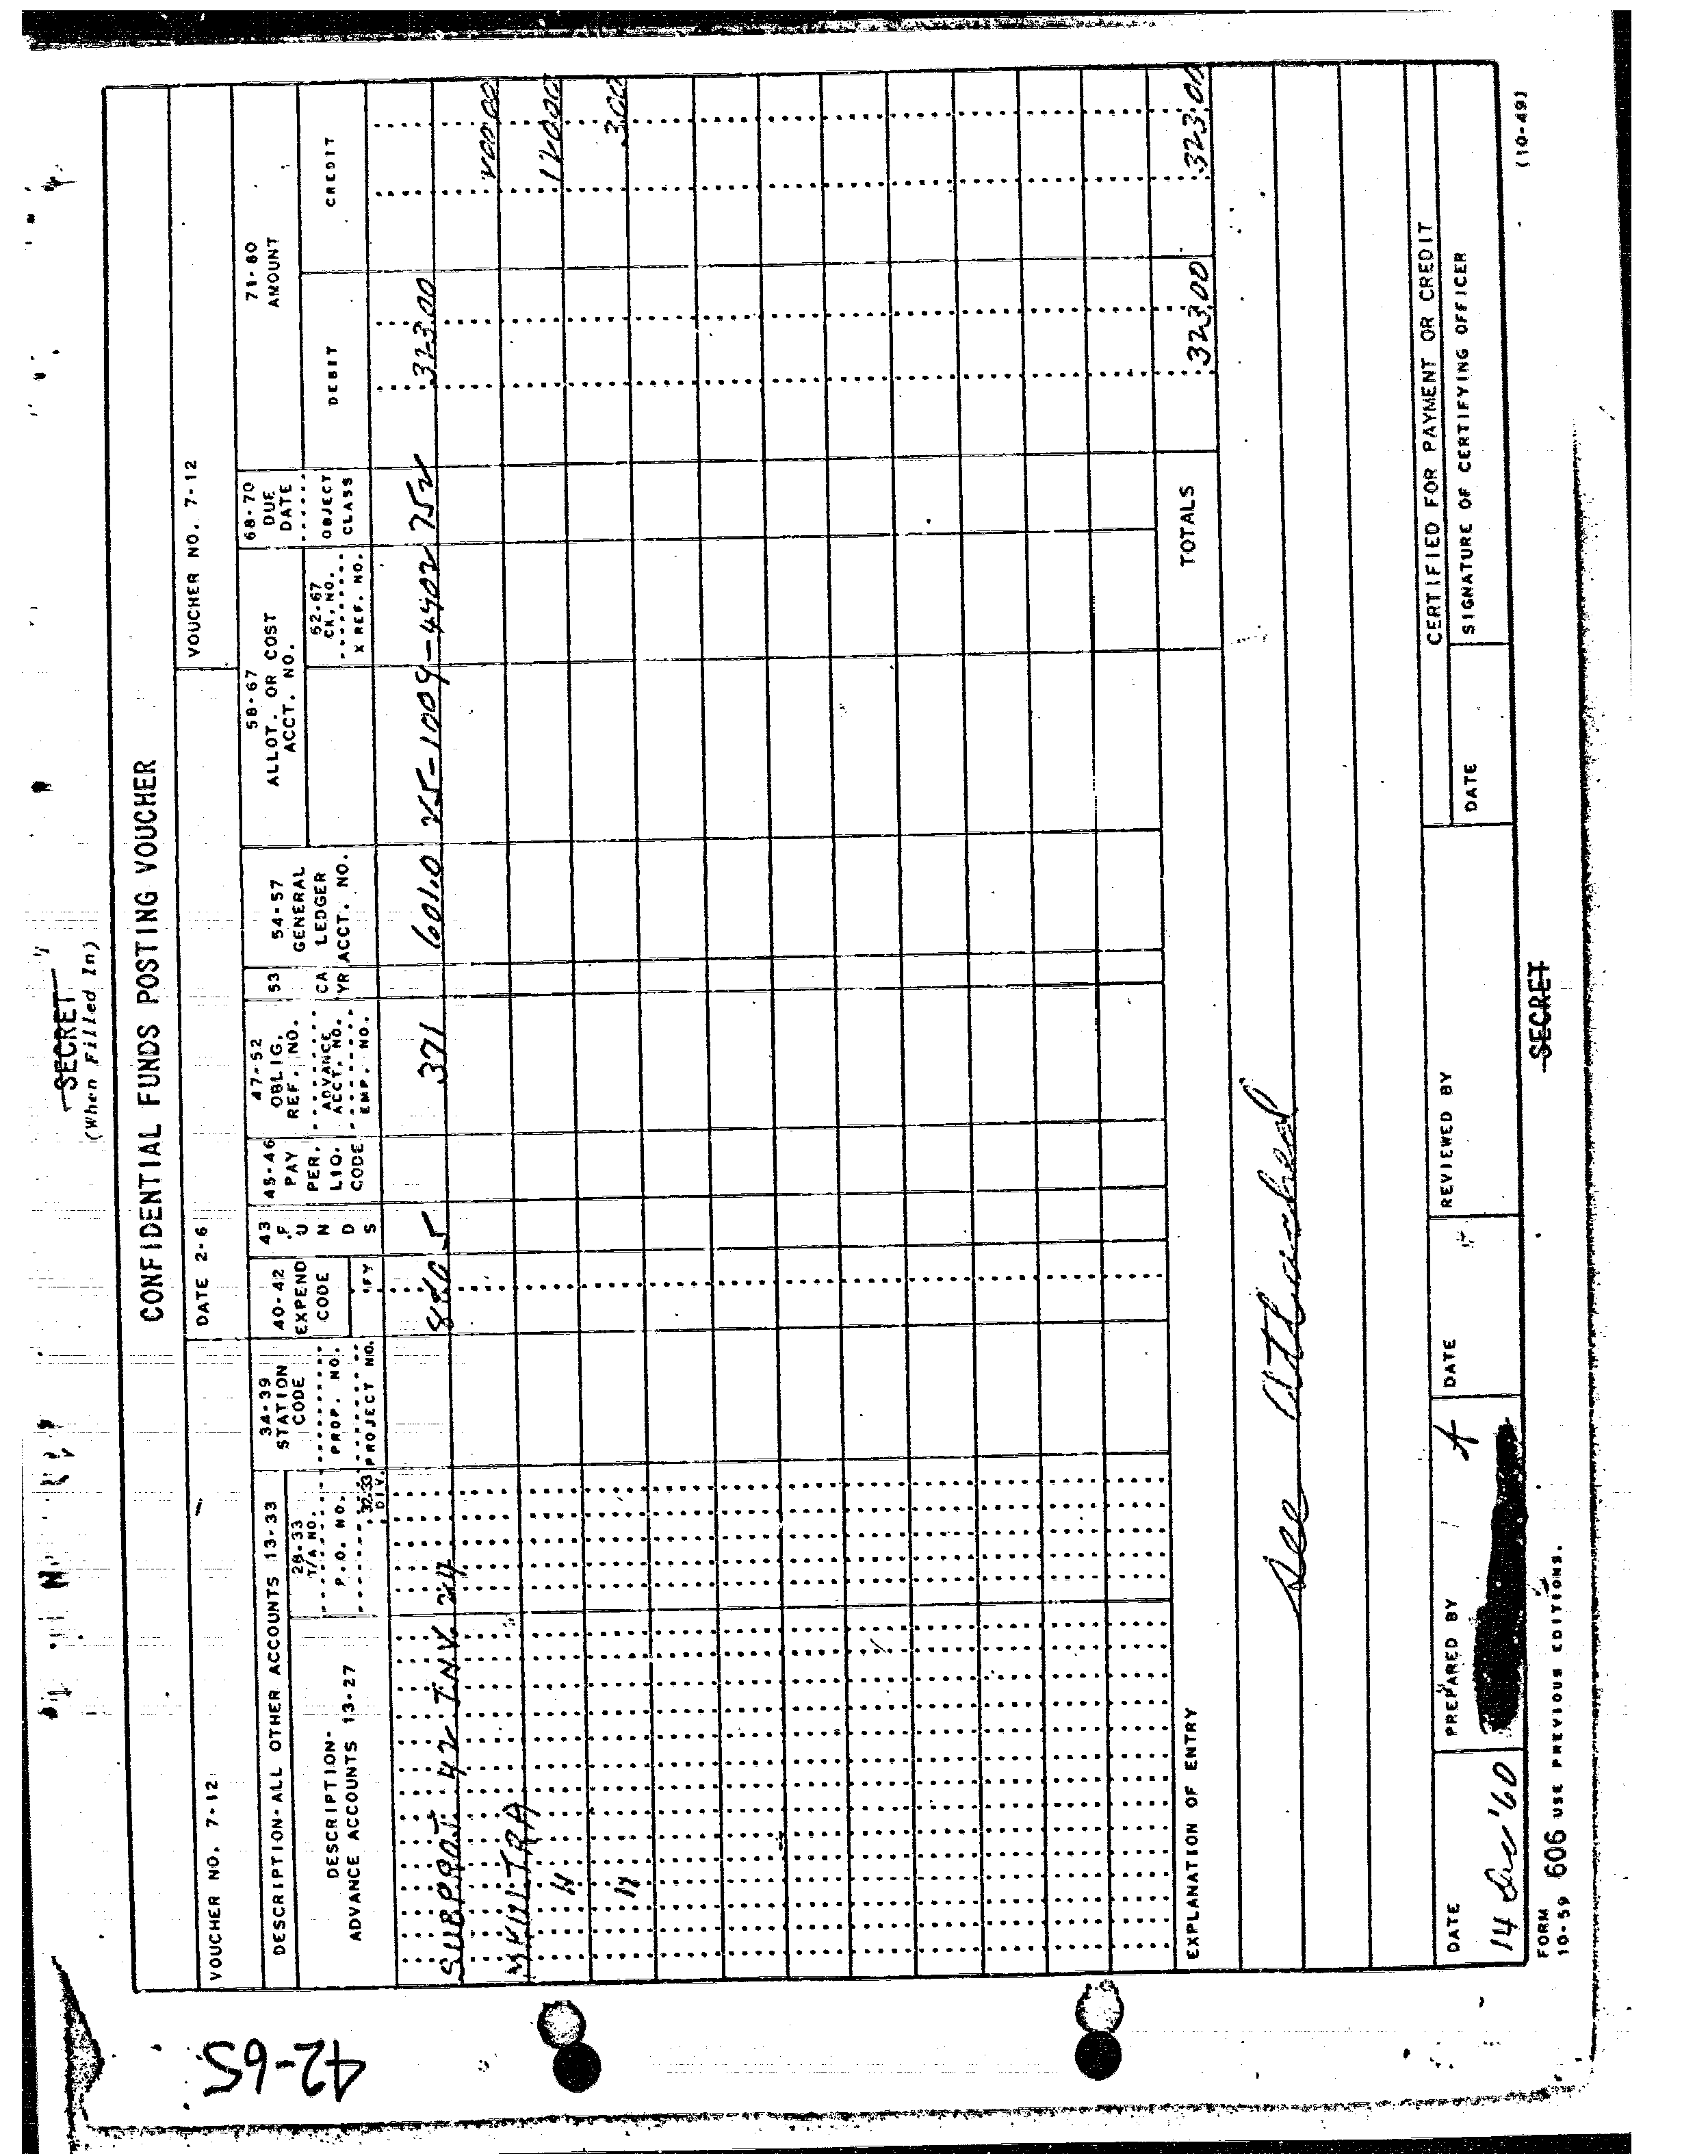 SECRET
(When Filled In)
CONFIDENTIAL FUNDS POSTING VOUCHER
VOUCHER NO. 7-12 DATE 2-6 VOUCHER NO. 7-12
DESCRIPTION-ALL OTHER ACCOUNTS 13-33
DESCRIPTION-
ADVANCE ACCOUNTS 13-27
28-33
T/A NO.
P.O. NO.
32-33
DIV.
34-39
STATION
CODE
PROP. NO.
PROJECT NO.
40-42
EXPEND
CODE
FY
43
F
U
N
D
S
45-46
PAY
PER.
LIQ.
CODE
47-52
OBLIG.
REF. NO.
ADVANCE
ACCT. NO.
EMP. NO.
53
CA
YR
54-57
GENERAL
LEDGER
ACCT. NO.
58-67
ALLOT. OR COST
ACCT. NO.
62-67
CK. NO.
X REF. NO.
68-70
DUE
DATE
OBJECT
CLASS
71-80
AMOUNT
DEBIT CREDIT
SUBPROJ. 42 INV. 24 371 601.0 25-1009-4902 752 323.00
MKULTRA 200.00
" 120.00
" 3.00
TOTALS 323.00 323.00
EXPLANATION OF ENTRY
See attached
CERTIFIED FOR PAYMENT OR CREDIT
DATE PREPARED BY DATE REVIEWED BY DATE SIGNATURE OF CERTIFYING OFFICER
14 Dec '60
FORM
10-59 606 USE PREVIOUS EDITIONS.
SECRET
(10-49)
42-65